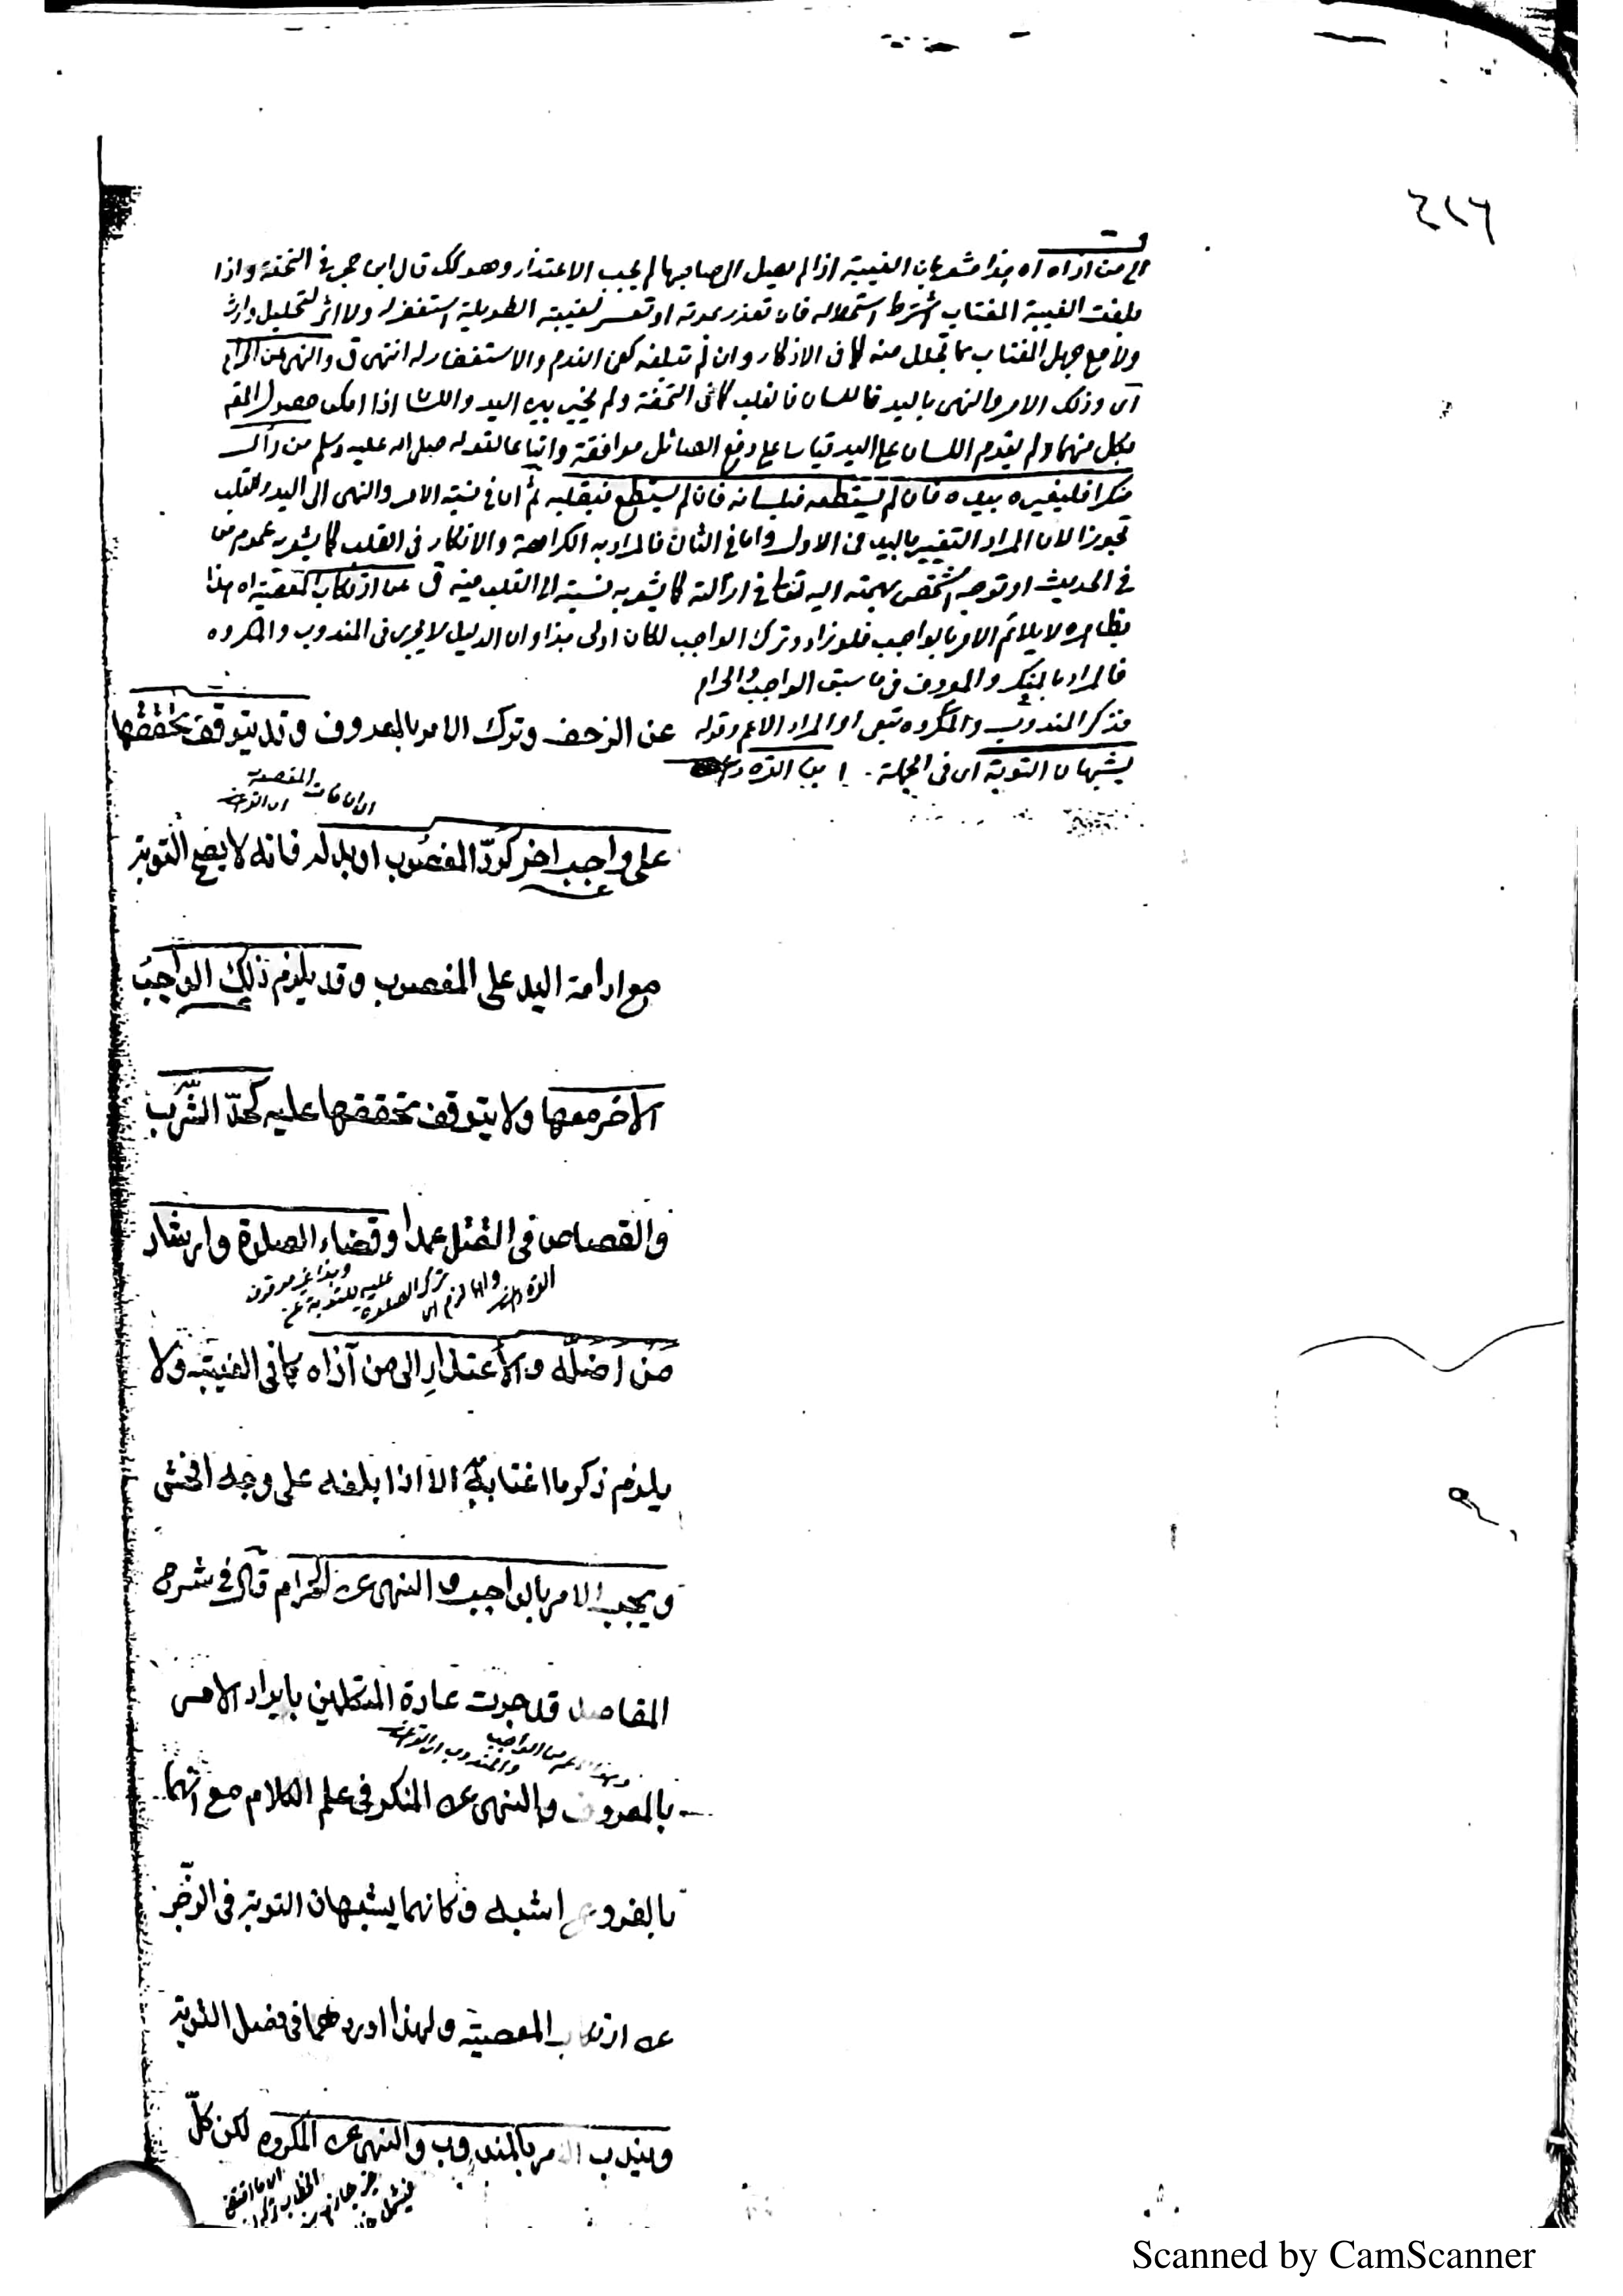 ٤١٦
الى من اذاه اه هذا مشعر بان الغيبة اذا لم يصل الى صاحبها لم يجب الاعتذار وهو كك قال ابن حجر في التحفة واذا
بلغت الغيبة المغتاب اشترط استحلاله فان تعذر بموته او تعسر لغيبته الطويلة استغفر له ولا اثر لتحليل وارث
ولا مع جهل المغتاب بما تحلل منه كما في الاذكار وان لم تبلغه كفى الندم والاستغفار له انتهى والنهى عن الحرام
اى وذلك الامر والنهى باليد فاللسان فالقلب كما في التحفة ولم يخير بين اليد واللسان اذا امكن حصول
بكل منهما ولم يقدم اللسان على اليد قياسا على دفع الصائل موافقة واتباعا لقوله صلى الله عليه وسلم من رأى
منكرا فليغيره بيده فان لم يستطعه فبلسانه فان لم يستطع فبقلبه ثم ان في نسبة الامر والنهى الى اليد والقلب
تجوزا لان المراد التغيير باليد في الاول واما في الثاني فالمراد به الكراهة والانكار في القلب كما يشعر به عموم من
في الحديث او توجه الشخص بهمته اليه تعالى في ازالته كما يشعر به نسبته الى القلب عن ارتكاب المعصية اه هذا
بظاهره لا يلائم الامر بالواجب فلو زاد وترك الواجب لكان اولى هذا وان الدليل لا يجرى في المندوب والمكروه
فالمراد بالمنكر والمعروف في ما سبق الواجب والحرام
فذكر المندوب والمكروه تبعى او المراد الاعم وقوله
يشبهان التوبة اى في الجملة
عن الزحف وترك الامر بالمعروف وقد يتوقف تحققها
على واجب اخر كردّ المغصوب او بدله فانه لا يصح التوبة
مع ادامة اليد على المغصوب وقد يلزم ذلك الواجب
الاخر معها ولا يتوقف تحققها عليه كحدّ الشرب
والقصاص في القتل عمدا وقضاء الصلوة وارشاد
من اضله والاعتذار الى من آذاه كما في الغيبة ولا
يلزم ذكر ما اغتابه الا اذا بلغه على وجه افحش
ويجب الامر بالواجب والنهى عن الحرام قال في شرح
المقاصد قد جرت عادة المتكلمين بايراد الامر
بالمعروف والنهى عن المنكر في علم الكلام مع انهما
بالفروع اشبه وكانهما يشبهان التوبة في الزجر
عن ارتكاب المعصية ولهذا اوردهما في فصل التوبة
ويندب الامر بالمندوب والنهى عن المكروه لكن كلّ
Scanned by CamScanner